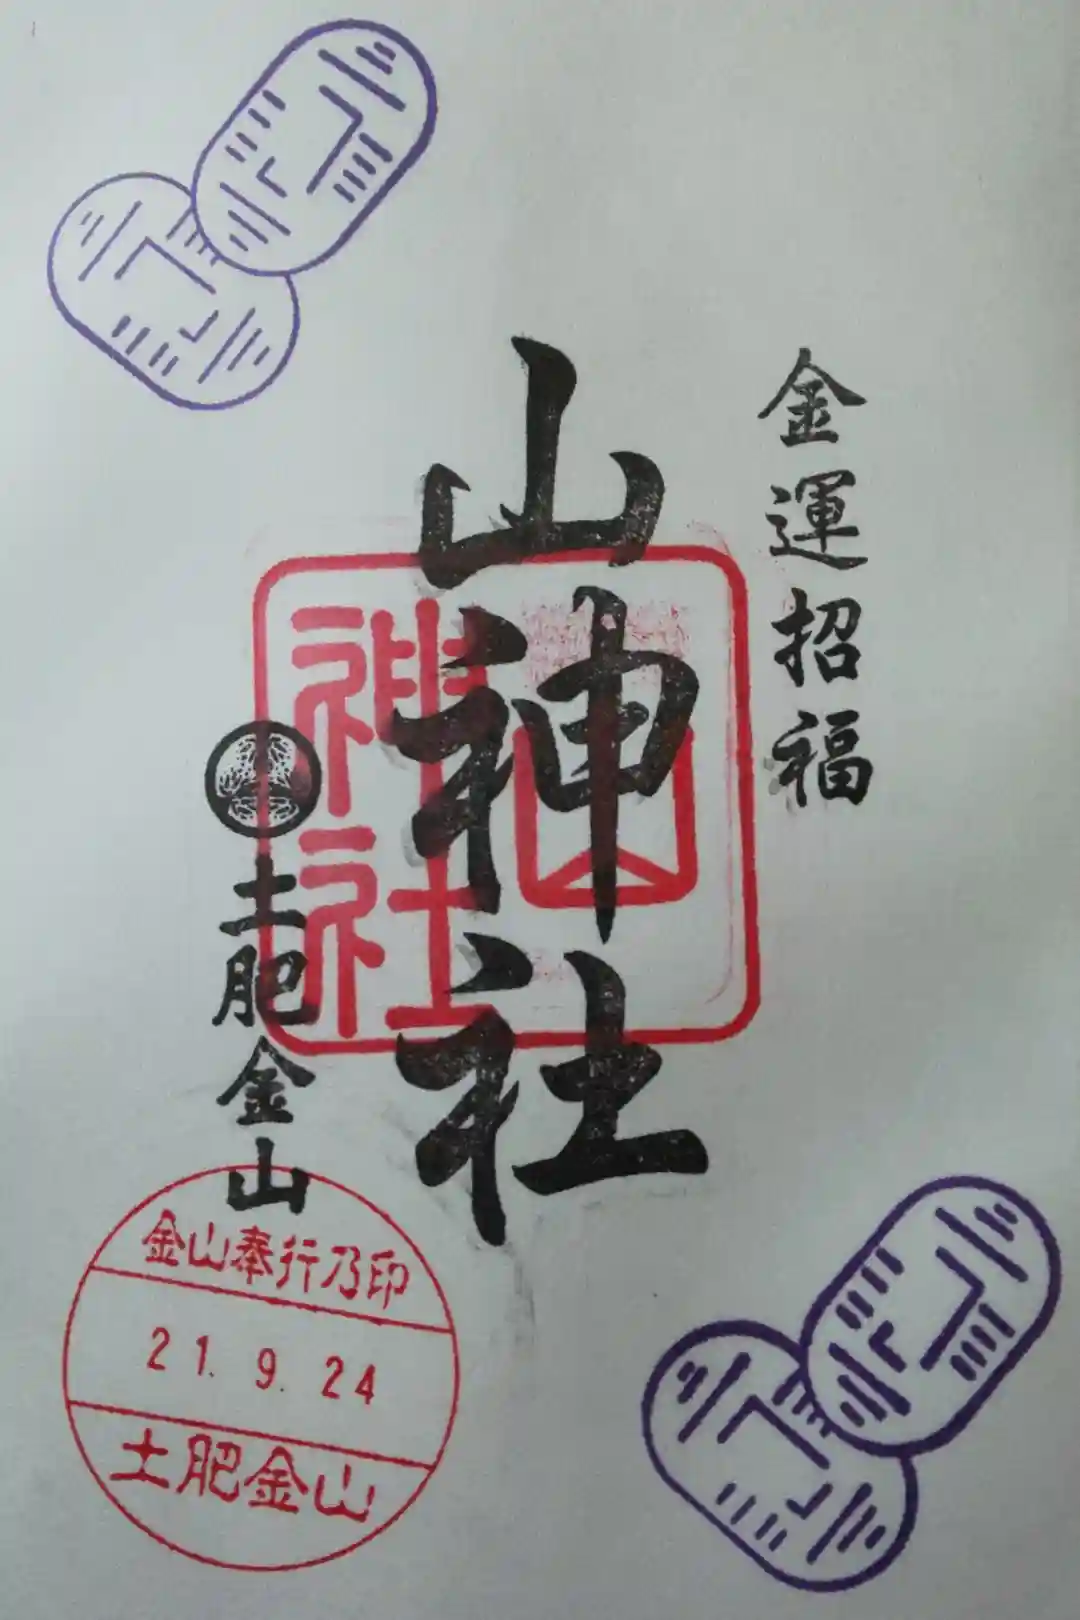 金運招福
山神社
山神社
土肥金山
金山奉行乃印
21. 9. 24
土肥金山